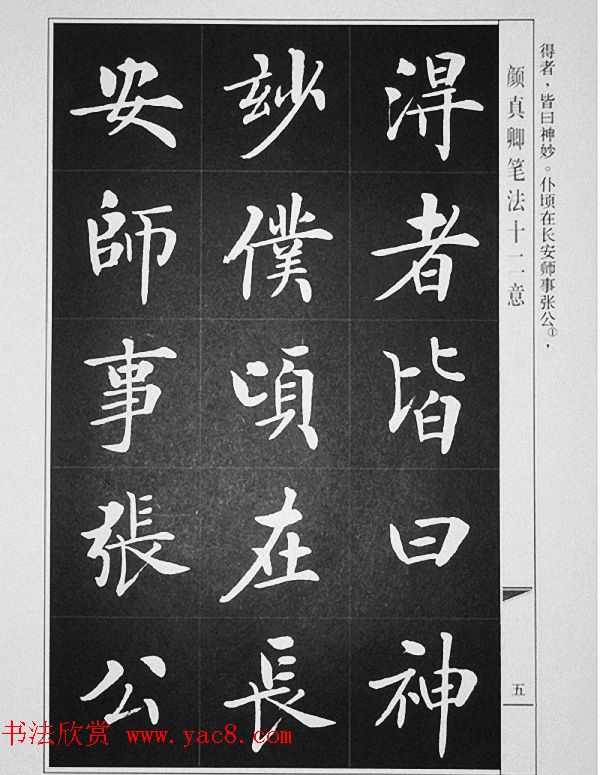 得者，皆曰神妙。仆顷在长安师事张公①，
颜真卿笔法十二意
五
淂者皆曰神
妙僕頃在長
安師事張公
书法欣赏 www.yac8.com